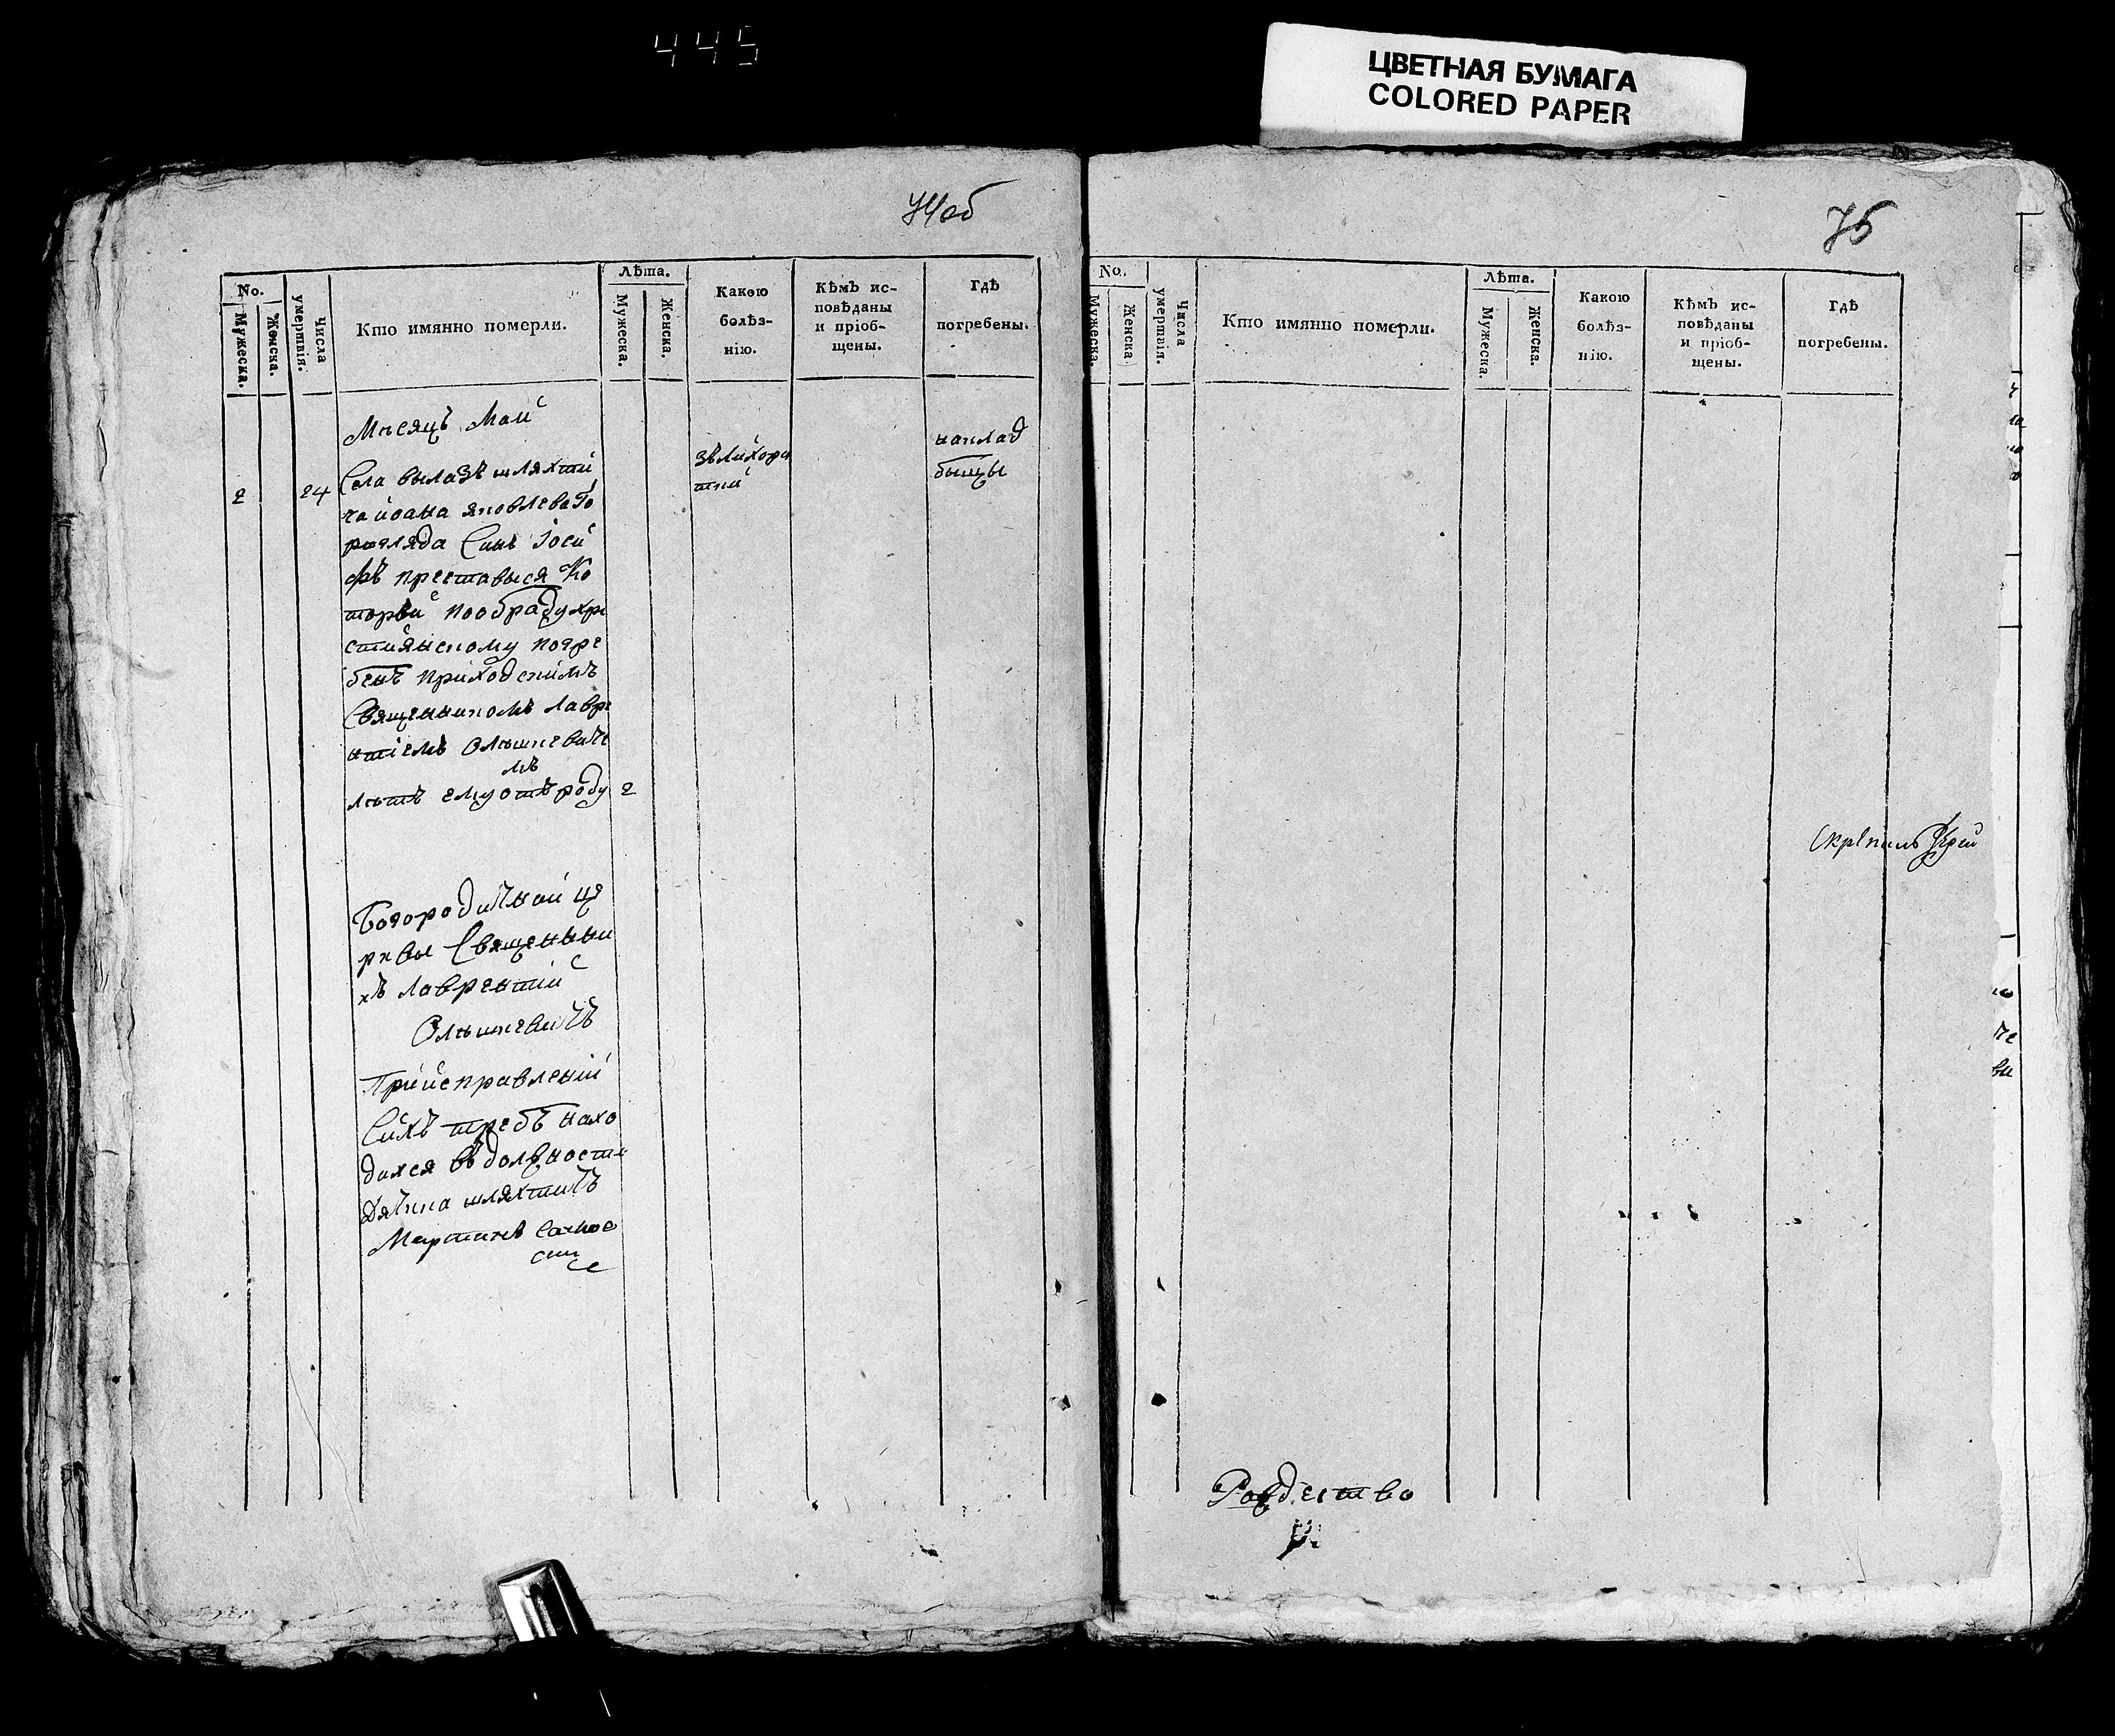 445
ЦВЕТНАЯ БУМАГА
COLORED PAPER
74об
No.
Мужеска.
Женска.
Числа умертвія.
Кто имянно померли.
Лѣта.
Мужеска.
Женска.
Какою
болѣз-
нію.
Кѣмъ ис-
повѣданы
и пріоб-
щены.
Гдѣ
погребены.
Мѣсяцъ Маій
2 24 Села вылазъ шляхти
ча иоана яковлева
Синъ іоси
фъ преставыся Ко
торій пообряду хри
стиянскому погре
бенъ приходскимъ
Священикомъ Лавре
нтіемъ Олѣшкевиче
мъ
лѣтъ ему отъ роду 2
наклад
быщы
Богородичной це
рквы Священни
къ Лаврентій
Олѣшкевичъ
При исправленій
Сихъ требъ нахо
дился въ должности
дячка шляхтичъ
Мартинъ
75
No.
Мужеска.
Женска.
Числа умертвія.
Кто имянно померли.
Лѣта.
Мужеска.
Женска.
Какою
болѣз-
нію.
Кѣмъ ис-
повѣданы
и пріоб-
щены.
Гдѣ
погребены.
Скрѣпилъ
Рождество